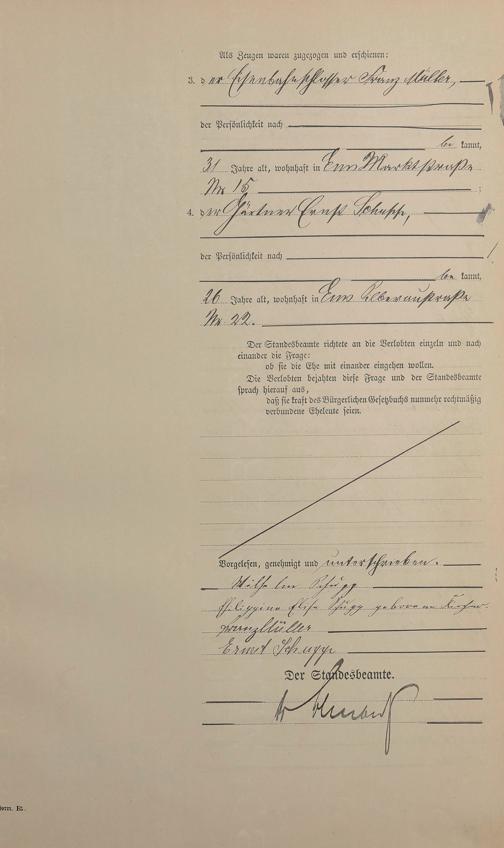 Als Zeugen waren zugezogen und erschienen:
3. der Eisenbahnschlosser Franz Müller,
der Persönlichkeit nach
be kannt,
31 Jahre alt, wohnhaft in Ems Marktstraße
Nr. 15 ;
4. der Gärtner Ernst Schupp,
der Persönlichkeit nach
be kannt,
26 Jahre alt, wohnhaft in Ems
Nr. 22.
Der Standesbeamte richtete an die Verlobten einzeln und nach
einander die Frage:
ob sie die Ehe mit einander eingehen wollen.
Die Verlobten bejahten diese Frage und der Standesbeamte
sprach hierauf aus,
daß sie kraft des Bürgerlichen Gesetzbuchs nunmehr rechtmäßig
verbundene Eheleute seien.
Vorgelesen, genehmigt und unterschrieben.
Wilhelm Schupp
Philippine Elise Schupp geborene
Franz Müller
Ernst Schupp
Der Standesbeamte.